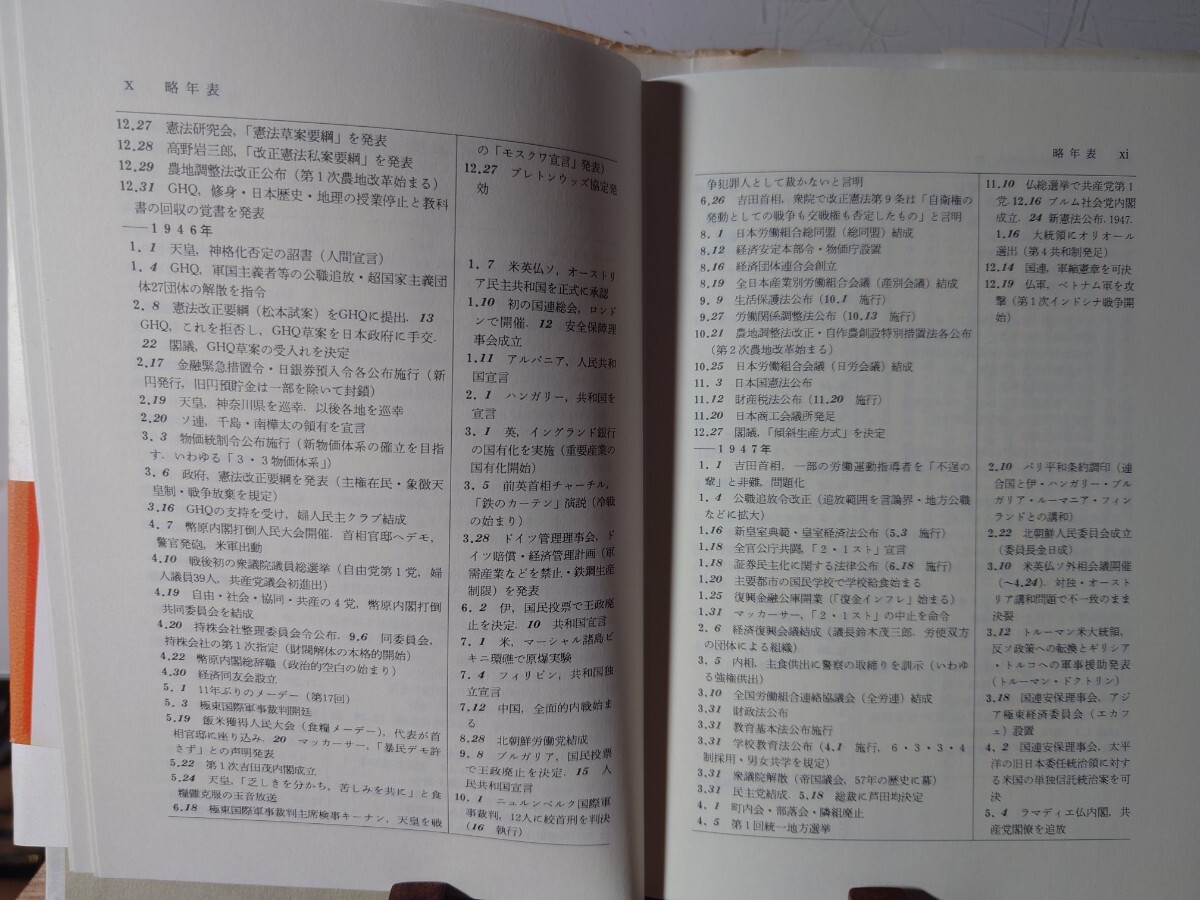 x 略年表
12.27 憲法研究会,「憲法草案要綱」を発表
12.28 高野岩三郎,「改正憲法私案要綱」を発表
12.29 農地調整法改正公布(第1次農地改革始まる)
12.31 GHQ, 修身・日本歴史・地理の授業停止と教科
書の回収の覚書を発表
——1946年
1.1 天皇, 神格化否定の詔書(人間宣言)
1.4 GHQ, 軍国主義者等の公職追放・超国家主義団
体27団体の解散を指令
2.8 憲法改正要綱(松本試案)をGHQに提出. 13
GHQ, これを拒否し, GHQ草案を日本政府に手交.
22 閣議, GHQ草案の受入れを決定
2.17 金融緊急措置令・日銀券預入令各公布施行(新
円発行, 旧円預貯金は一部を除いて封鎖)
2.19 天皇, 神奈川県を巡幸. 以後各地を巡幸
2.20 ソ連, 千島・南樺太の領有を宣言
3.3 物価統制令公布施行(新物価体系の確立を目指
す. いわゆる「3・3物価体系」)
3.6 政府, 憲法改正要綱を発表(主権在民・象徴天
皇制・戦争放棄を規定)
3.16 GHQの支持を受け, 婦人民主クラブ結成
4.7 幣原内閣打倒人民大会開催. 首相官邸へデモ,
警官発砲, 米軍出動
4.10 戦後初の衆議院議員総選挙(自由党第1党, 婦
人議員39人, 共産党議会初進出)
4.19 自由・社会・協同・共産の4党, 幣原内閣打倒
共同委員会を結成
4.20 持株会社整理委員会令公布. 9.6 同委員会,
持株会社の第1次指定(財閥解体の本格的開始)
4.22 幣原内閣総辞職(政治的空白の始まり)
4.30 経済同友会設立
5.1 11年ぶりのメーデー(第17回)
5.3 極東国際軍事裁判開廷
5.19 飯米獲得人民大会(食糧メーデー), 代表が首
相官邸に座り込み. 20 マッカーサー,「暴民デモ許
さず」との声明発表
5.22 第1次吉田茂内閣成立
5.24 天皇,「乏しきを分かち, 苦しみを共に」と食
糧難克服の玉音放送
6.18 極東国際軍事裁判主席検事キーナン, 天皇を戦
の「モスクワ宣言」発表)
12.27 ブレトンウッズ協定発
効
1.7 米英仏ソ, オーストリ
ア民主共和国を正式に承認
1.10 初の国連総会, ロンド
ンで開催. 12 安全保障理
事会成立
1.11 アルバニア, 人民共和
国宣言
2.1 ハンガリー, 共和国を
宣言
3.1 英, イングランド銀行
の国有化を実施(重要産業の
国有化開始)
3.5 前英首相チャーチル,
「鉄のカーテン」演説(冷戦
の始まり)
3.28 ドイツ管理理事会, ド
イツ賠償・経済管理計画(軍
需産業などを禁止・鉄鋼生産
制限)を発表
6.2 伊, 国民投票で王政廃
止を決定. 10 共和国宣言
7.1 米, マーシャル諸島ビ
キニ環礁で原爆実験
7.4 フィリピン, 共和国独
立宣言
7.12 中国, 全面的内戦始ま
る
8.28 北朝鮮労働党結成
9.8 ブルガリア, 国民投票
で王政廃止を決定. 15 人
民共和国宣言
10.1 ニュルンベルク国際軍
事裁判, 12人に絞首刑を判決
(16 執行)
略年表 xi
争犯罪人として裁かないと言明
6.26 吉田首相, 衆院で改正憲法第9条は「自衛権の
発動としての戦争も交戦権も否定したもの」と言明
8.1 日本労働組合総同盟(総同盟)結成
8.12 経済安定本部令・物価庁設置
8.16 経済団体連合会創立
8.19 全日本産業別労働組合会議(産別会議)結成
9.9 生活保護法公布(10.1 施行)
9.27 労働関係調整法公布(10.13 施行)
10.21 農地調整法改正・自作農創設特別措置法各公布
(第2次農地改革始まる)
10.25 日本労働組合会議(日労会議)結成
11.3 日本国憲法公布
11.12 財産税法公布(11.20 施行)
11.20 日本商工会議所発足
12.27 閣議,「傾斜生産方式」を決定
——1947年
1.1 吉田首相, 一部の労働運動指導者を「不逞の
輩」と非難, 問題化
1.4 公職追放令改正(追放範囲を言論界・地方公職
などに拡大)
1.16 新皇室典範・皇室経済法公布(5.3 施行)
1.18 全官公庁共闘,「2・1スト」宣言
1.18 証券民主化に関する法律公布(6.18 施行)
1.20 主要都市の国民学校で学校給食始まる
1.25 復興金融公庫開業(「復金インフレ」始まる)
1.31 マッカーサー,「2・1スト」の中止を命令
2.6 経済復興会議結成(議長鈴木茂三郎. 労使双方
の団体による組織)
3.5 内相, 主食供出に警察の取締りを訓示(いわゆ
る強権供出)
3.10 全国労働組合連絡協議会(全労連)結成
3.31 財政法公布
3.31 教育基本法公布施行
3.31 学校教育法公布(4.1 施行, 6・3・3・4
制採用・男女共学を規定)
3.31 衆議院解散(帝国議会, 57年の歴史に幕)
3.31 民主党結成. 5.18 総裁に芦田均決定
4.1 町内会・部落会・隣組廃止
4.5 第1回統一地方選挙
11.10 仏総選挙で共産党第1
党. 12.16 ブルム社会党内閣
成立. 24 新憲法公布. 1947.
1.16 大統領にオリオール
選出(第4共和制発足)
12.14 国連, 軍縮憲章を可決
12.19 仏軍, ベトナム軍を攻
撃(第1次インドシナ戦争開
始)
2.10 パリ平和条約調印(連
合国と伊・ハンガリー・ブル
ガリア・ルーマニア・フィン
ランドとの講和)
2.22 北朝鮮人民委員会成立
(委員長金日成)
3.10 米英仏ソ外相会議開催
(〜4.24). 対独・オースト
リア講和問題で不一致のまま
決裂
3.12 トルーマン米大統領,
反ソ政策への転換とギリシア
・トルコへの軍事援助発表
(トルーマン・ドクトリン)
3.18 国連安保理事会, アジ
ア極東経済委員会(エカフ
ェ)設置
4.2 国連安保理事会, 太平
洋の旧日本委任統治領に対す
る米国の単独信託統治案を可
決
5.4 ラマディエ仏内閣, 共
産党閣僚を追放